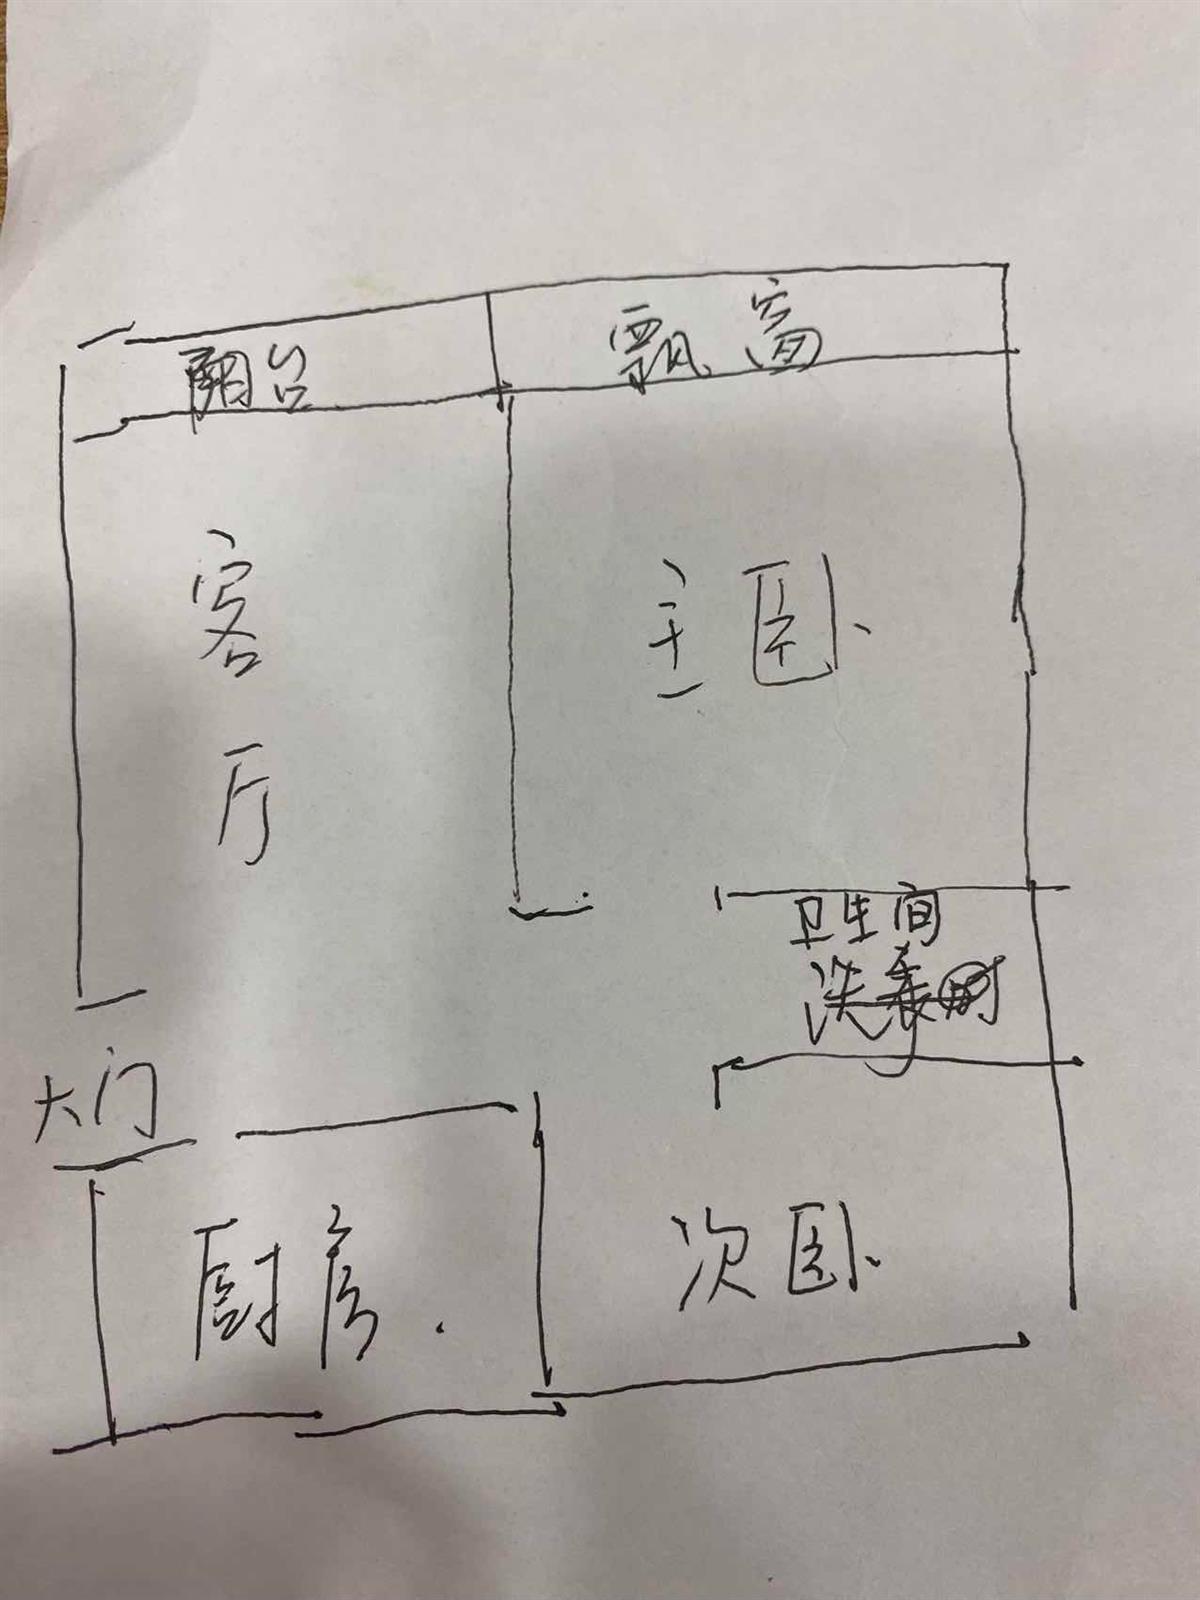 阳台
飘窗
客厅
主卧
卫生间
大门
厨房.
次卧